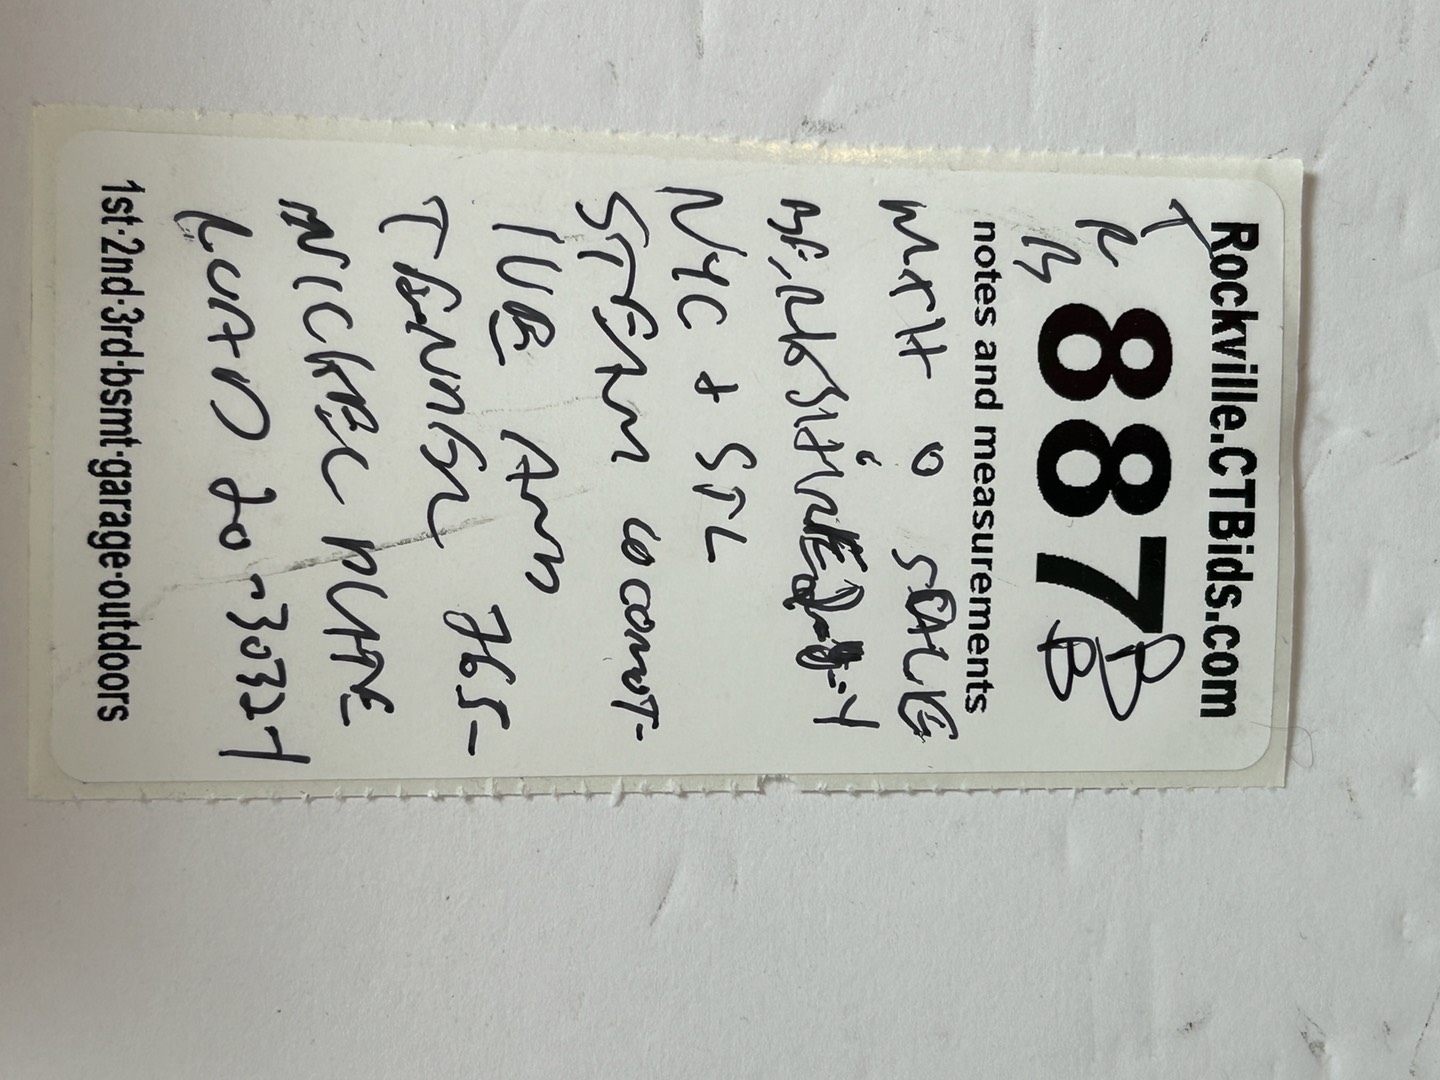 Rockville.CTBids.com
T
R
B
887
B
B
notes and measurements
MTH O SCALE
BERKSHIRE 2-8-4
NYC + STL
STEAM LOCOMOT-
IVE AND
TENDER 765-
NICKEL PLATE
ROAD 20-3032-1
1st·2nd·3rd·bsmt·garage·outdoors